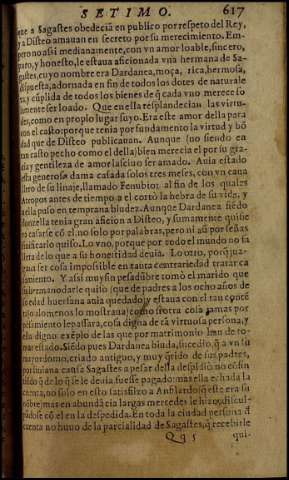 SETIMO. 617
que a Sagastes obedecia en publico por respeto del Rey,
y a Disteo amauan en secreto por su merecimiento. Em
pero no assi medianamente, con vn amor loable, sincero,
puro, y honesto, le estaua aficionada vna hermana de Sa-
gastes, cuyo nombre era Dardanea, moça, rica, hermosa,
dispuesta, adornada en fin de todos los dotes de naturale
za, y cũplida de todos los bienes de q̃ cada vno merece so
lamente ser loado. Que en ella resplandecian las virtu-
des, como en propio lugar suyo. Era este amor della para
con el casto: porque tenia por fundamento la virtud y bõ
dad que de Disteo publicauan. Aunque (no siendo en
tan casto pecho como el della) bien merecia el por su gra
cia y gentileza de amor lasciuo ser amado. Auia estado
esta generosa dama casada solos tres meses, con vn caua
llero de su linaje, llamado Fenubio: al fin de los quales
Atropos antes de tiempo a el cortò la hebra de su vida, y
a ella puso en temprana biudez. Aunque Dardanea siẽdo
donzella tenia gran aficion a Disteo, y sumamente quiso
casarse cõ el: no solo por palabras, pero ni aũ por señas
sinificarlo quiso. Lo vno, porque por todo el mundo no
hiziera lo que a su honestidad deuia. Lo otro, porq̃ juz-
gaua ser cosa impossible en tanta contrariedad tratarse
casamiento. Y assi muy sin pesadũbre tomò el marido que
quisieron darle
quito (que de padres a los ocho años de
su edad huerfana auia quedado) y estaua con el tan contẽ
ta, o alomenos lo mostraua, como si otra cosa jamas por
pẽsamiento le passara, cosa digna de tã virtuosa persona, y
ella digno exẽplo de las que por matrimonio han de to-
mar estado. Siẽdo pues Dardanea biuda, sucediò, q̃ a vn su
mayordomo, criado antiguo, y muy q̃rido de sus padres,
por liuiana causa Sagastes a pesar della despidiò
no cõ sin
auerse pagado: mas ella echada la
cuenta, no solo en esto satisfizo a Anfilardo (q̃ este era su
nõbre) mas en abundãcia largas mercedes le hizo,
cõ el en la despedida. En toda la ciudad persona d̃
cuenta no huuo de la parcialidad de Sagastes, q̃ recebirle
Qq 5 qui-